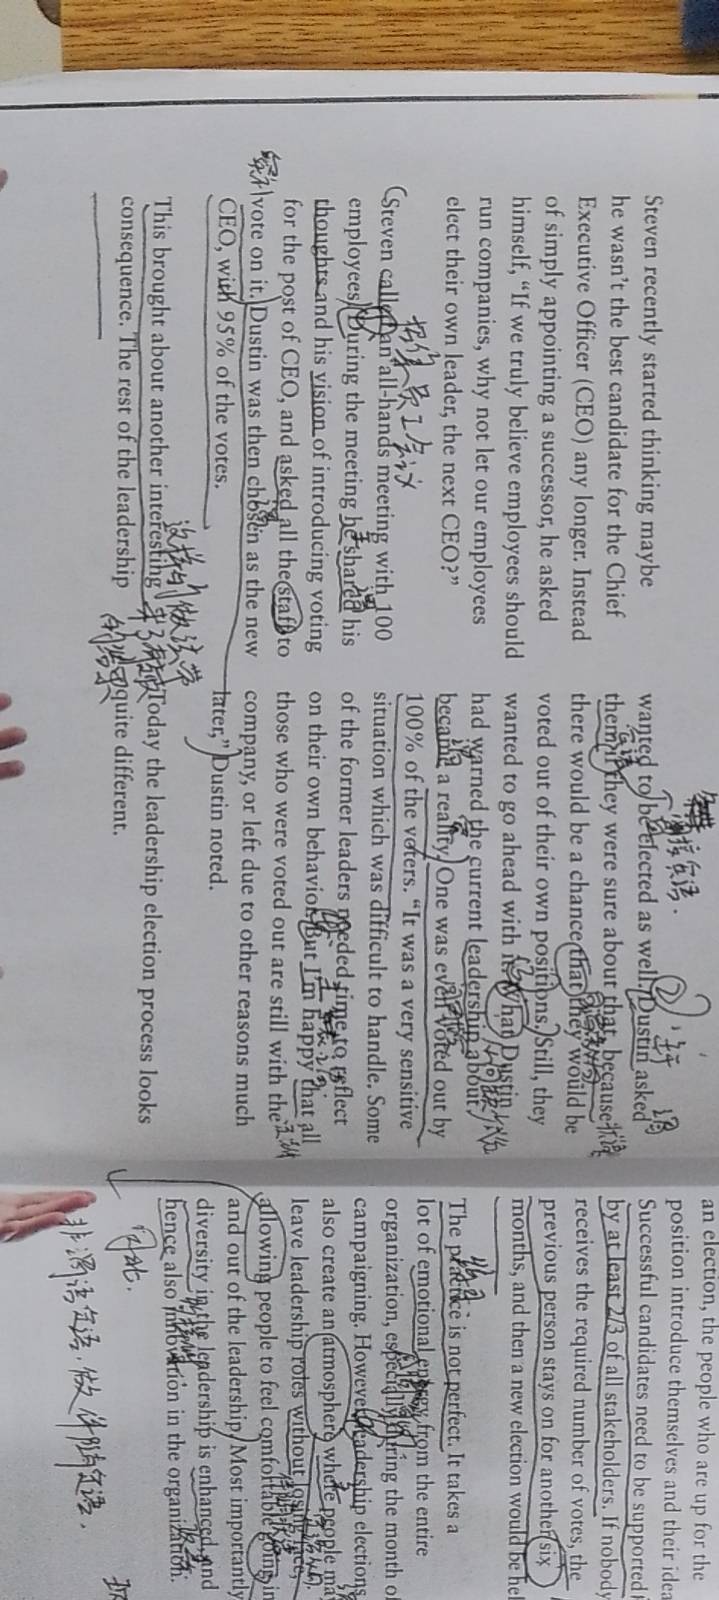 Steven recently started thinking maybe
he wasn't the best candidate for the Chief
Executive Officer (CEO) any longer. Instead
of simply appointing a successor, he asked
himself, “If we truly believe employees should
run companies, why not let our employees
elect their own leader, the next CEO?”
招集员工会议
Steven called an all-hands meeting with 100
employees. During the meeting he shared his
thoughts and his vision of introducing voting
for the post of CEO, and asked all the staff to
vote on it. Dustin was then chosen as the new
CEO, with 95% of the votes.
这样的做法带
来了有趣
的结果
This brought about another interesting
consequence. The rest of the leadership
wanted to be elected as well. Dustin asked
them if they were sure about that, because
there would be a chance that they would be
voted out of their own positions. Still, they
wanted to go ahead with it. What Dustin
had warned the current leadership about
became a reality. One was even voted out by
100% of the voters. “It was a very sensitive
situation which was difficult to handle. Some
of the former leaders needed time to reflect
on their own behavior. But I'm happy that all
those who were voted out are still with the
company, or left due to other reasons much
later,” Dustin noted.
Today the leadership election process looks
quite different.
an election, the people who are up for the
position introduce themselves and their idea
Successful candidates need to be supported
by at least 2/3 of all stakeholders. If nobody
receives the required number of votes, the
previous person stays on for another six
months, and then a new election would be hel
The practice is not perfect. It takes a
lot of emotional energy from the entire
organization, especially during the month of
campaigning. However, leadership elections
also create an atmosphere where people ma
leave leadership roles without losing face,
allowing people to feel comfortable going in
and out of the leadership. Most importantly
diversity in the leadership is enhanced, and
hence also innovation in the organization.
因此.
非谓语定语,做伴随定语,